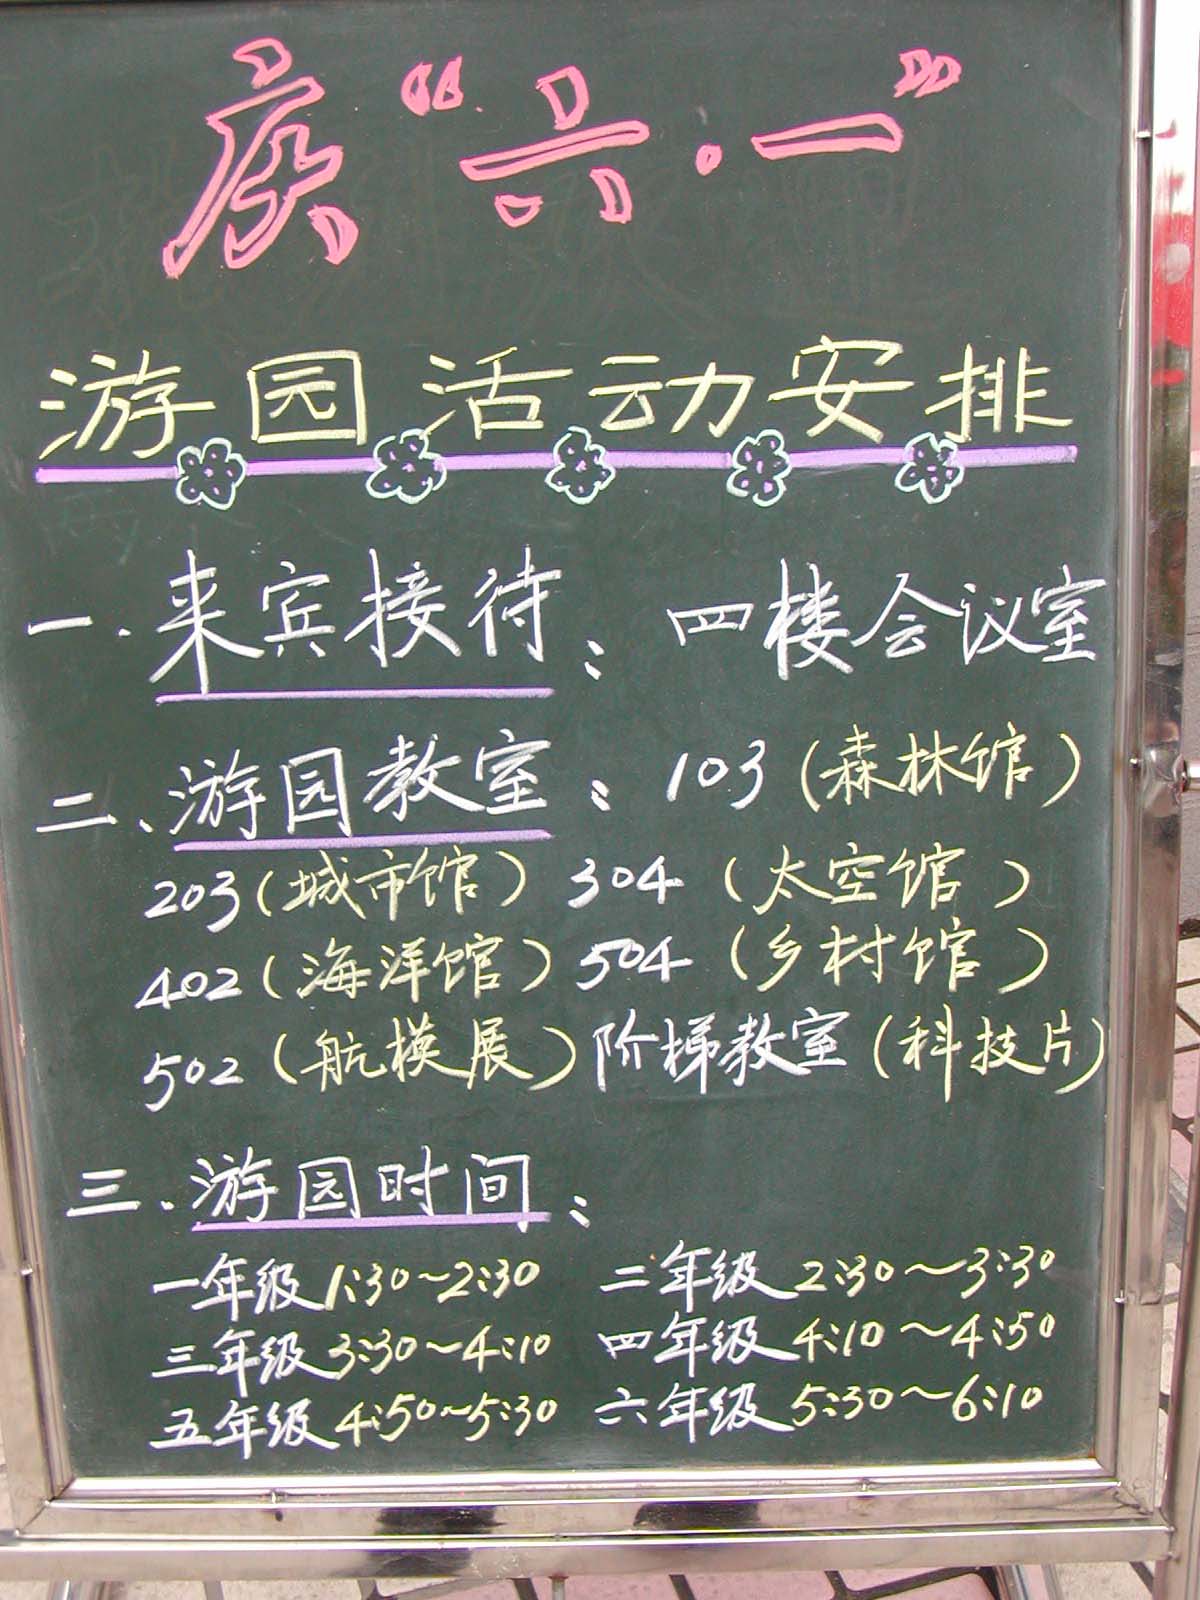 庆“六·一”
游园活动安排
一.来宾接待：四楼会议室
二、游园教室：103（森林馆）
203（城市馆）304（太空馆）
402（海洋馆）504（乡村馆）
502（航模展）阶梯教室（科技片）
三、游园时间：
一年级1:30～2:30 二年级2:30～3:30
三年级3:30～4:10 四年级4:10～4:50
五年级4:50～5:30 六年级5:30～6:10